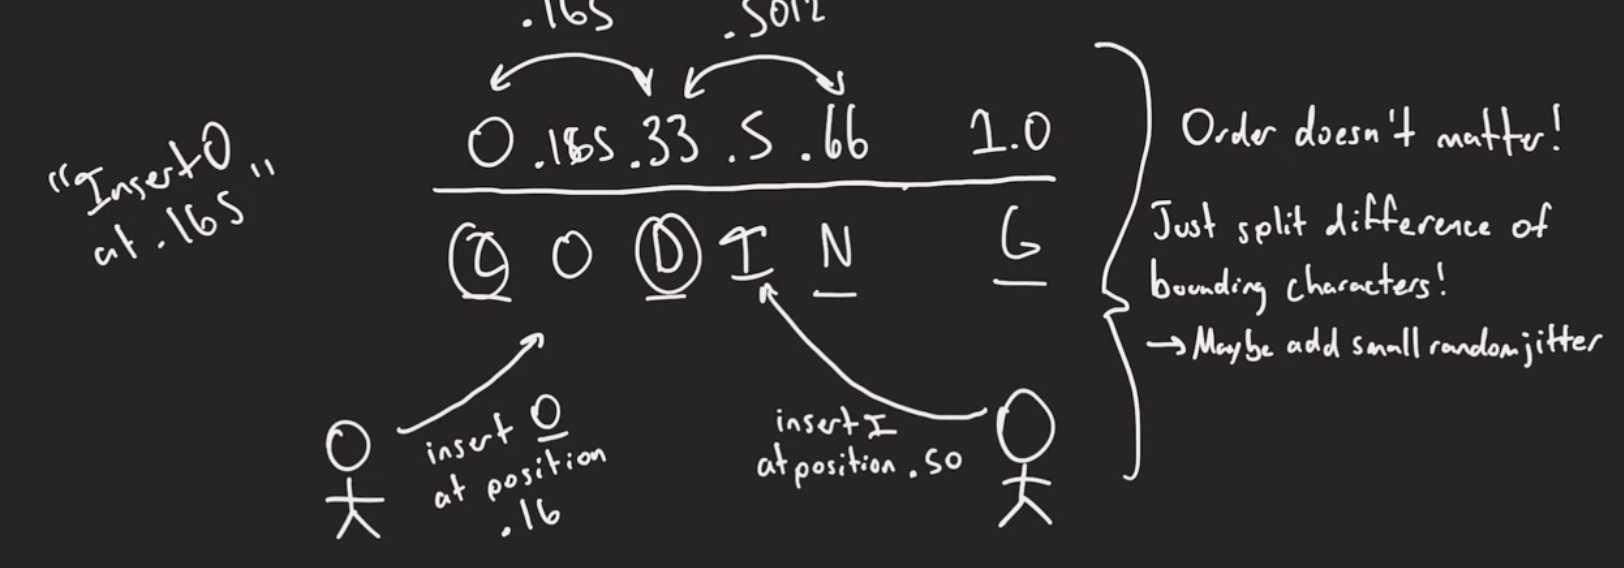 .165 .5012
0 .165 .33 .5 .66 1.0
C O D I N G
"Insert O
at .165"
insert O
at position
.16
insert I
at position .50
Order doesn't matter!
Just split difference of
bounding characters!
→ Maybe add small random jitter